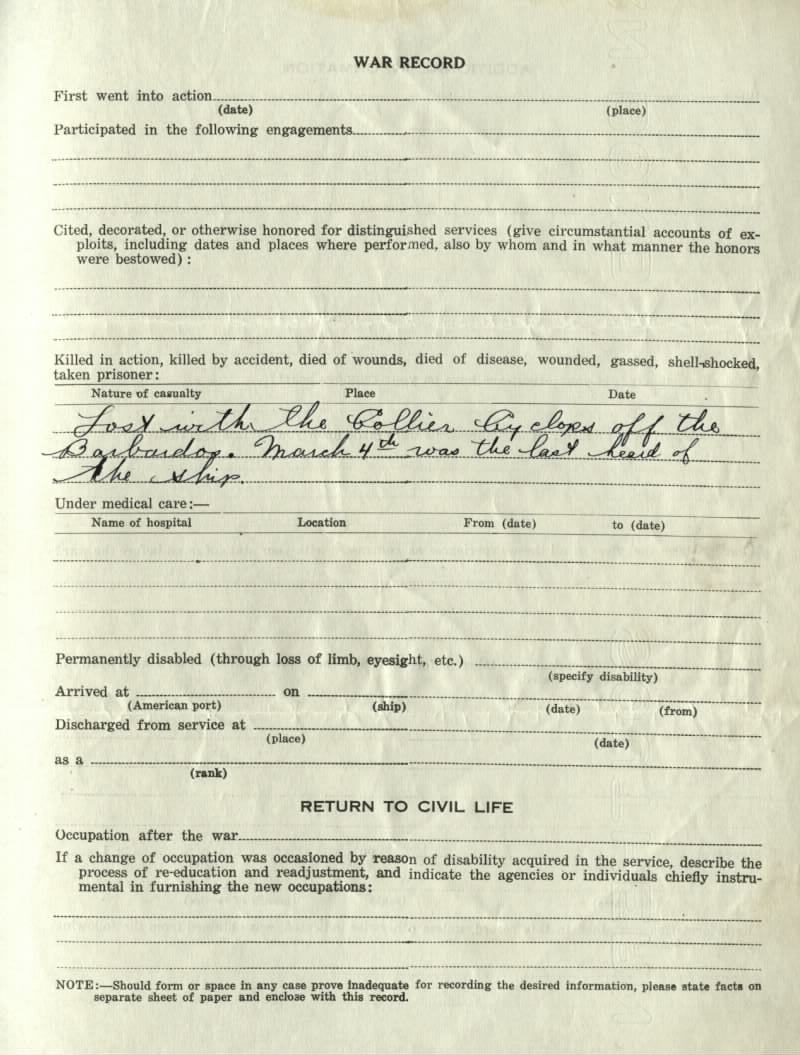 WAR RECORD
First went into action
(date) (place)
Participated in the following engagements
Cited, decorated, or otherwise honored for distinguished services (give circumstantial accounts of ex-
ploits, including dates and places where performed, also by whom and in what manner the honors
were bestowed) :
Killed in action, killed by accident, died of wounds, died of disease, wounded, gassed, shell-shocked,
taken prisoner:
Nature of casualty Place Date
Lost with the Collier Cyclops off the
Barbardos. March 4th was the last heard of
the ship.
Under medical care:—
Name of hospital Location From (date) to (date)
Permanently disabled (through loss of limb, eyesight, etc.)
(specify disability)
Arrived at on
(American port) (ship) (date) (from)
Discharged from service at
(place) (date)
as a
(rank)
RETURN TO CIVIL LIFE
Occupation after the war
If a change of occupation was occasioned by reason of disability acquired in the service, describe the
process of re-education and readjustment, and indicate the agencies or individuals chiefly instru-
mental in furnishing the new occupations:
NOTE:—Should form or space in any case prove inadequate for recording the desired information, please state facts on
separate sheet of paper and enclose with this record.